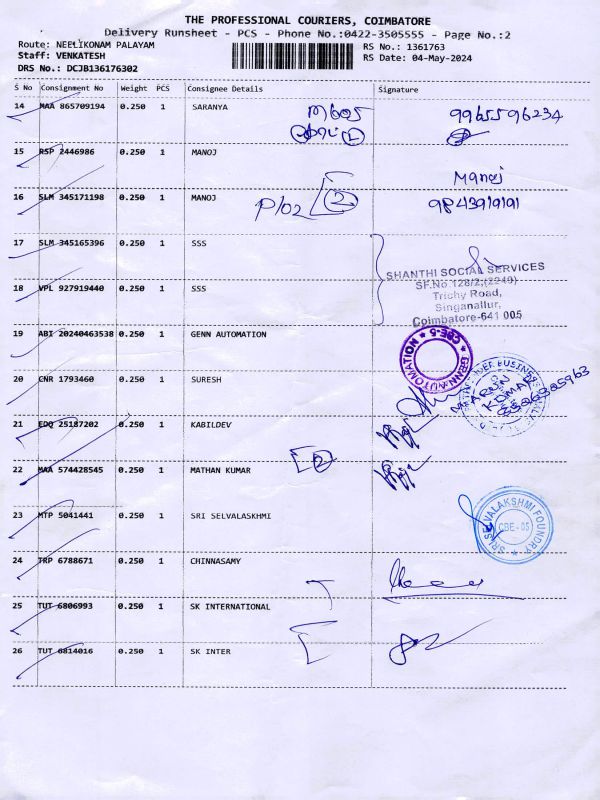 THE PROFESSIONAL COURIERS, COIMBATORE
Delivery Runsheet - PCS - Phone No.:0422-3505555 - Page No.:2
Route: NEELIKONAM PALAYAM
RS No.: 1361763
Staff: VENKATESH
RS Date: 04-May-2024
DRS No.: DCJB136176302
S No Consignment No Weight PCS Consignee Details Signature
14 MAA 865709194 0.250 1 SARANYA 9965596234
15 RSP 2446986 0.250 1 MANOJ Manoj
16 SLM 345171198 0.250 1 MANOJ P/02 2 9843919191
17 SLM 345165396 0.250 1 SSS
SHANTHI SOCIAL SERVICES
SF.No.128/2,(2249)
18 VPL 927919440 0.250 1 SSS
Trichy Road,
Singanallur,
Coimbatore-641 005
19 ABI 20240463538 0.250 1 GENN AUTOMATION
GENN AUTOMATION * CBE-5 *
20 CNR 1793460 0.250 1 SURESH
ARUN
KUMAR
21 EDQ 25187202 0.250 1 KABILDEV
22 MAA 574428545 0.250 1 MATHAN KUMAR 2
23 MTP 5041441 0.250 1 SRI SELVALASKHMI
SRI SELVALAKSHMI FOUNDRY
CBE - 05
24 TRP 6788671 0.250 1 CHINNASAMY
25 TUT 6806993 0.250 1 SK INTERNATIONAL
26 TUT 6814016 0.250 1 SK INTER